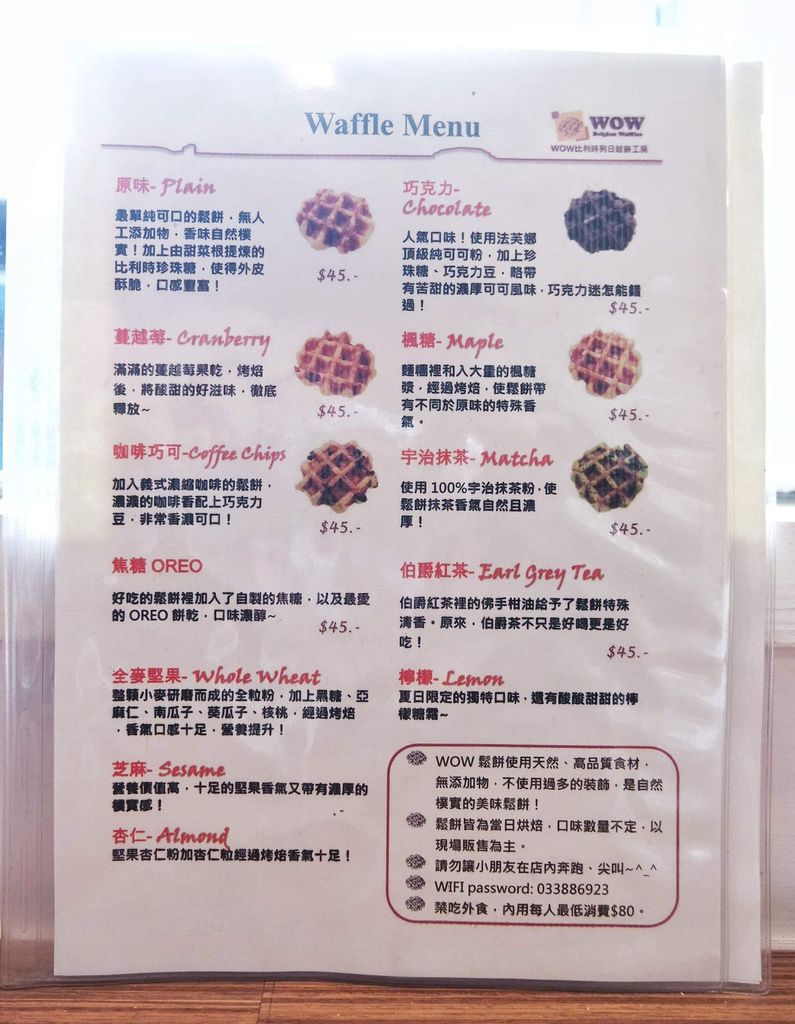 Waffle Menu
WOW
Belgian Waffles
WOW比利時列日鬆餅工房
原味- Plain
最單純可口的鬆餅，無人
工添加物，香味自然樸
實！加上由甜菜根提煉的
比利時珍珠糖，使得外皮
酥脆，口感豐富！
$45.-
巧克力-
Chocolate
人氣口味！使用法芙娜
頂級純可可粉，加上珍
珠糖、巧克力豆，略帶
有苦甜的濃厚可可風味，巧克力迷怎能錯
過！
$45.-
蔓越莓- Cranberry
滿滿的蔓越莓果乾，烤焙
後，將酸甜的好滋味，徹底
釋放~
$45.-
楓糖- Maple
麵糰裡和入大量的楓糖
漿，經過烤焙，使鬆餅帶
有不同於原味的特殊香
氣。
$45.-
咖啡巧可-Coffee Chips
加入義式濃縮咖啡的鬆餅，
濃濃的咖啡香配上巧克力
豆，非常香濃可口！
$45.-
宇治抹茶- Matcha
使用 100%宇治抹茶粉，使
鬆餅抹茶香氣自然且濃
厚！
$45.-
焦糖 OREO
好吃的鬆餅裡加入了自製的焦糖，以及最愛
的 OREO 餅乾，口味濃醇~
$45.-
伯爵紅茶- Earl Grey Tea
伯爵紅茶裡的佛手柑油給予了鬆餅特殊
清香。原來，伯爵茶不只是好喝更是好
吃！
$45.-
全麥堅果- Whole Wheat
整顆小麥研磨而成的全粒粉，加上黑糖、亞
麻仁、南瓜子、葵瓜子、核桃，經過烤焙
，香氣口感十足，營養提升！
檸檬- Lemon
夏日限定的獨特口味，還有酸酸甜甜的檸
檬糖霜~
芝麻- Sesame
營養價值高，十足的堅果香氣又帶有濃厚的
樸實感！
.-
杏仁- Almond
堅果杏仁粉加杏仁粒經過烤焙香氣十足！
WOW 鬆餅使用天然、高品質食材，
無添加物，不使用過多的裝飾，是自然
樸實的美味鬆餅！
鬆餅皆為當日烘焙，口味數量不定，以
現場販售為主。
請勿讓小朋友在店內奔跑、尖叫~^_^
WIFI password: 033886923
禁吃外食，內用每人最低消費$80。